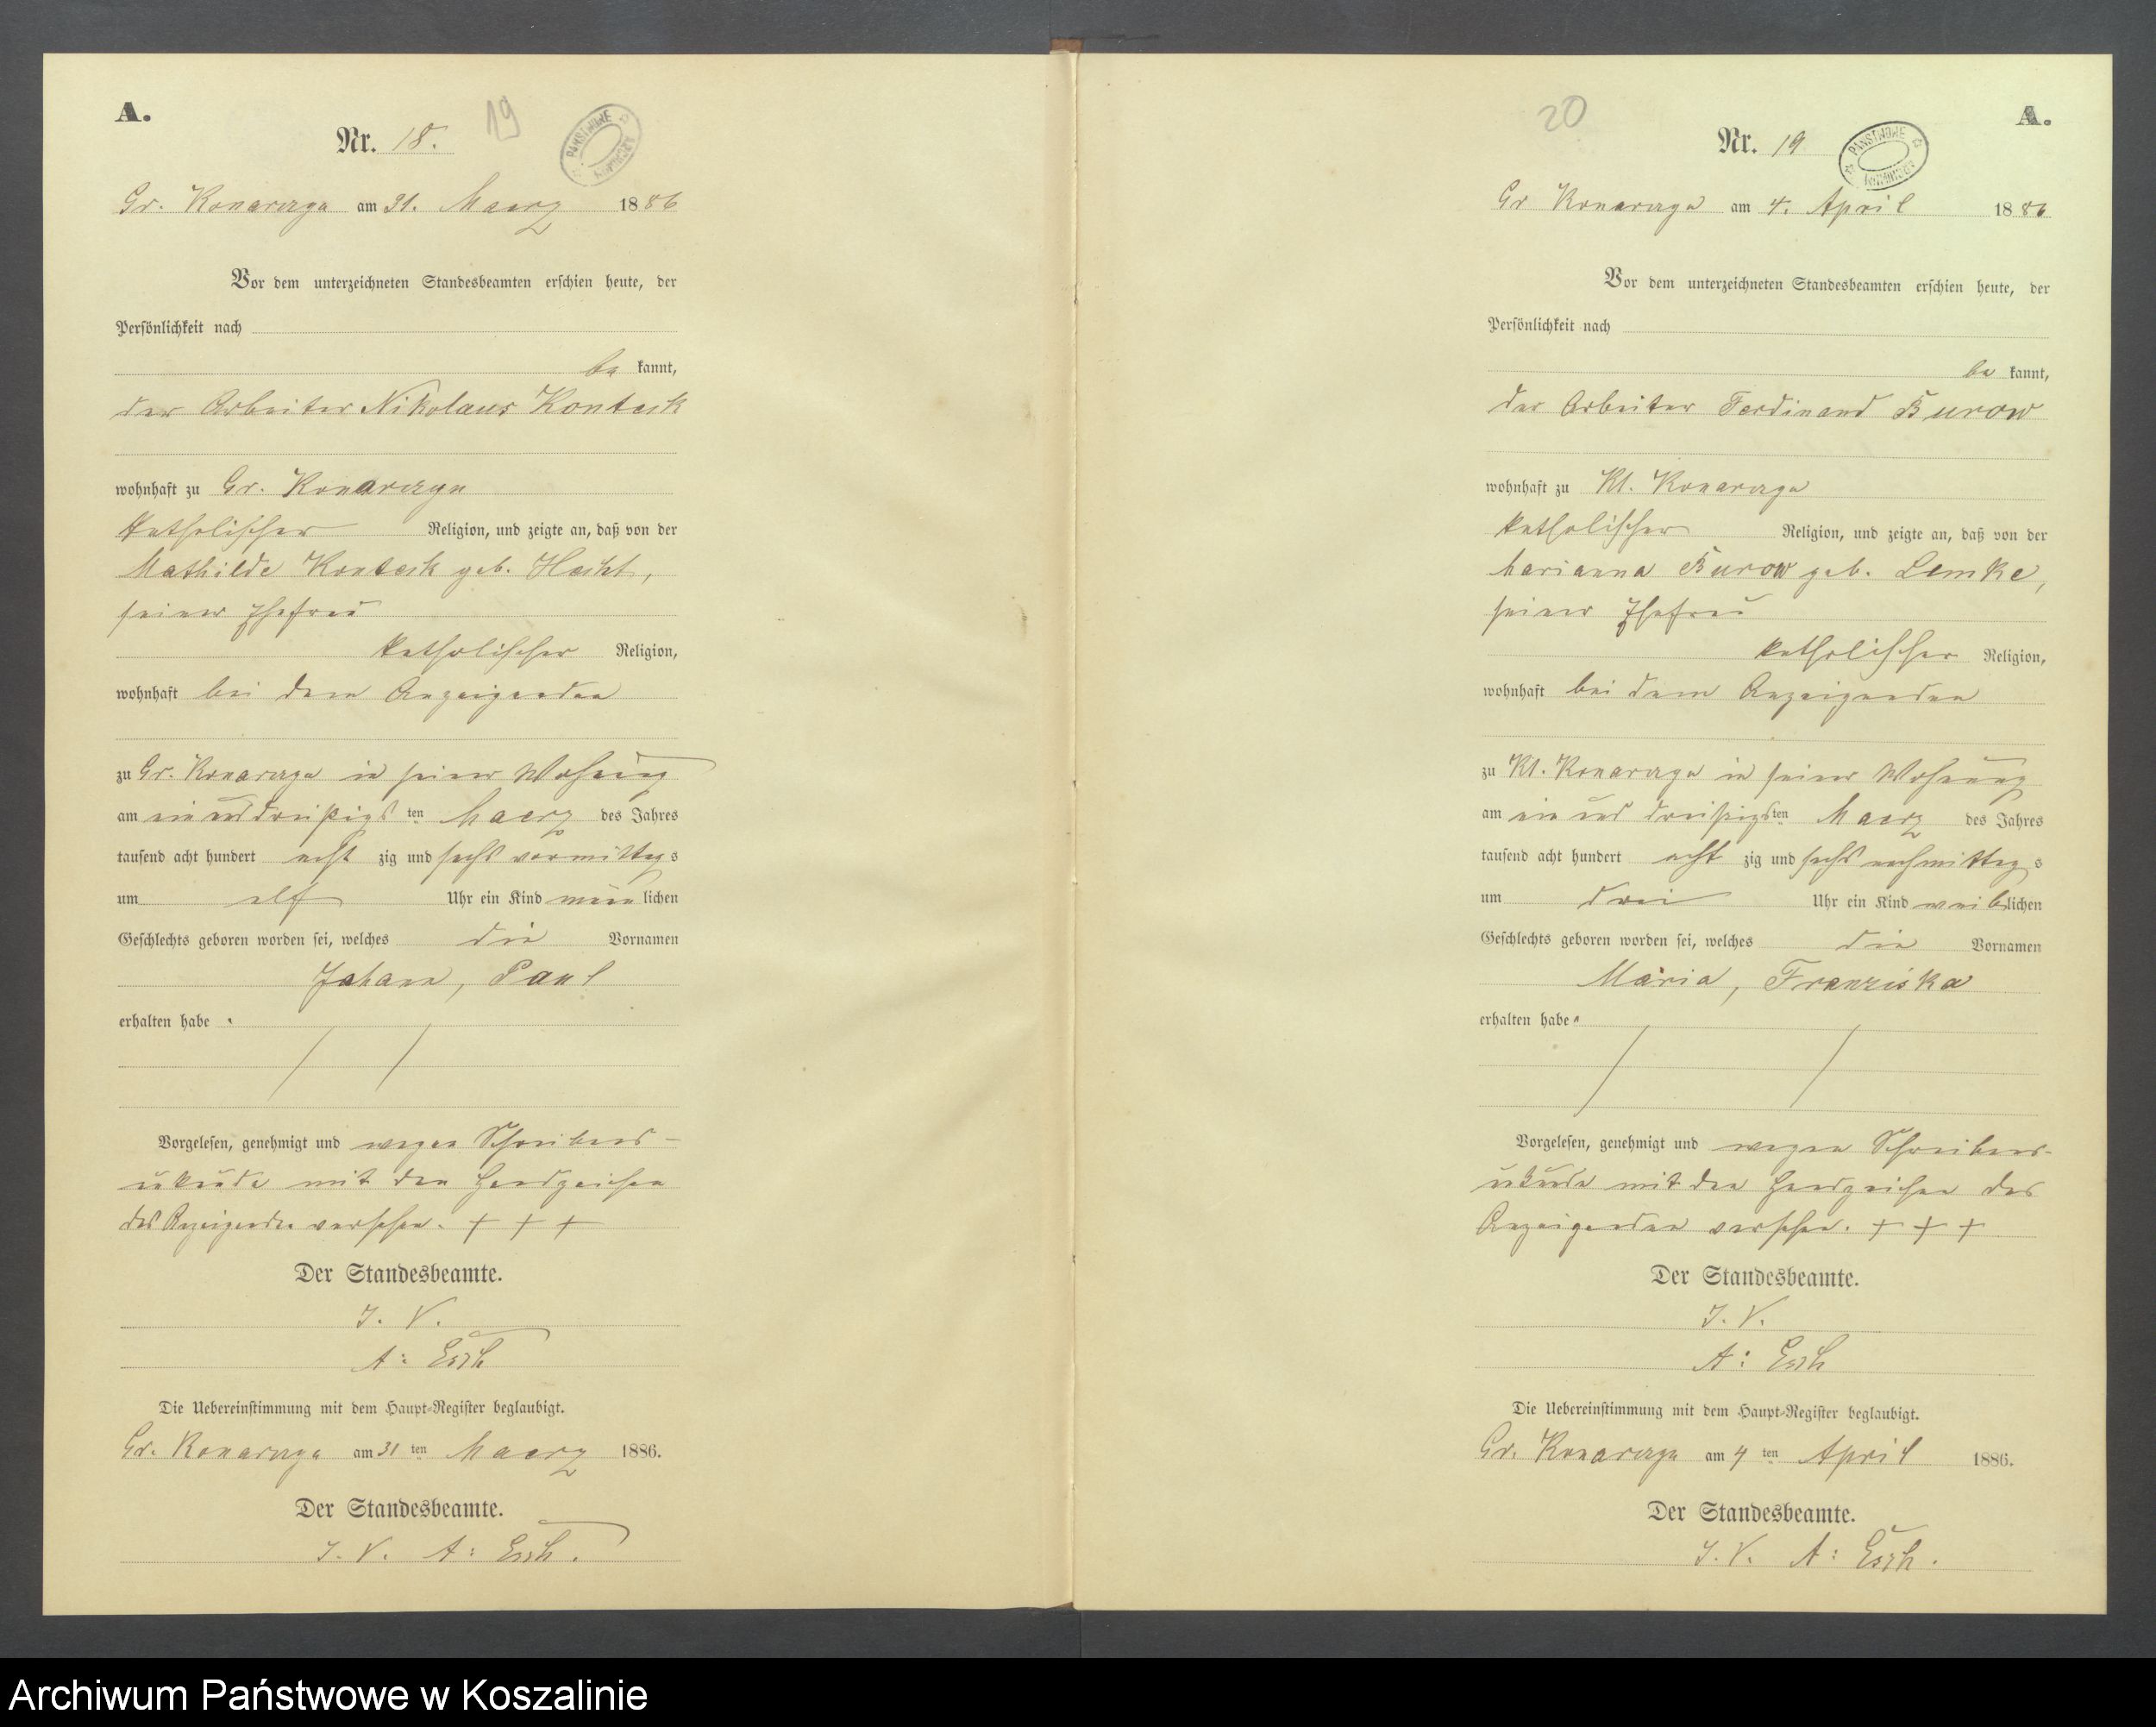 A.
Nr. 18.
19
PAŃSTWOWE ARCHIWUM
Gr. Konarczyn am 31. Maerz 1886
Vor dem unterzeichneten Standesbeamten erschien heute, der
Persönlichkeit nach
be kannt,
der Arbeiter Nikolaus Kontek
wohnhaft zu Gr. Konarczyn
katholischer Religion, und zeigte an, daß von der
Mathilde geb.
seiner Ehefrau
katholischer Religion,
wohnhaft bei dem Anzeigenden
zu Gr. Konarczyn in seiner Wohnung
am ein und dreißigs ten Maerz des Jahres
tausend acht hundert acht zig und sechs vormittag s
um elf Uhr ein Kind männ lichen
Geschlechts geboren worden sei, welches die Vornamen
Johann, Paul
erhalten habe.
Vorgelesen, genehmigt und wegen Schreibens-
unkunde mit den Handzeichen
des Anzeigenden versehen. + + +
Der Standesbeamte.
J. V.
A: Esch
Die Uebereinstimmung mit dem Haupt-Register beglaubigt.
Gr. Konarczyn am 31 ten Maerz 1886.
Der Standesbeamte.
J. V. A: Esch.
20
A.
Nr. 19
PAŃSTWOWE ARCHIWUM
Gr Konarczyn am 4. April 1886
Vor dem unterzeichneten Standesbeamten erschien heute, der
Persönlichkeit nach
be kannt,
der Arbeiter Ferdinand Burow
wohnhaft zu Kl. Konarczyn
katholischer Religion, und zeigte an, daß von der
Marianna Burow geb. Lemke,
seiner Ehefrau
katholischer Religion,
wohnhaft bei dem Anzeigenden
zu Kl. Konarczyn in seiner Wohnung
am ein und dreißigs ten Maerz des Jahres
tausend acht hundert acht zig und sechs nachmittag s
um drei Uhr ein Kind weib lichen
Geschlechts geboren worden sei, welches die Vornamen
Maria, Franziska
erhalten habe.
Vorgelesen, genehmigt und wegen Schreibens-
unkunde mit den Handzeichen des
Anzeigenden versehen. + + +
Der Standesbeamte.
J. V.
A: Esch
Die Uebereinstimmung mit dem Haupt-Register beglaubigt.
Gr. Konarczyn am 4 ten April 1886.
Der Standesbeamte.
J. V. A: Esch.
Archiwum Państwowe w Koszalinie